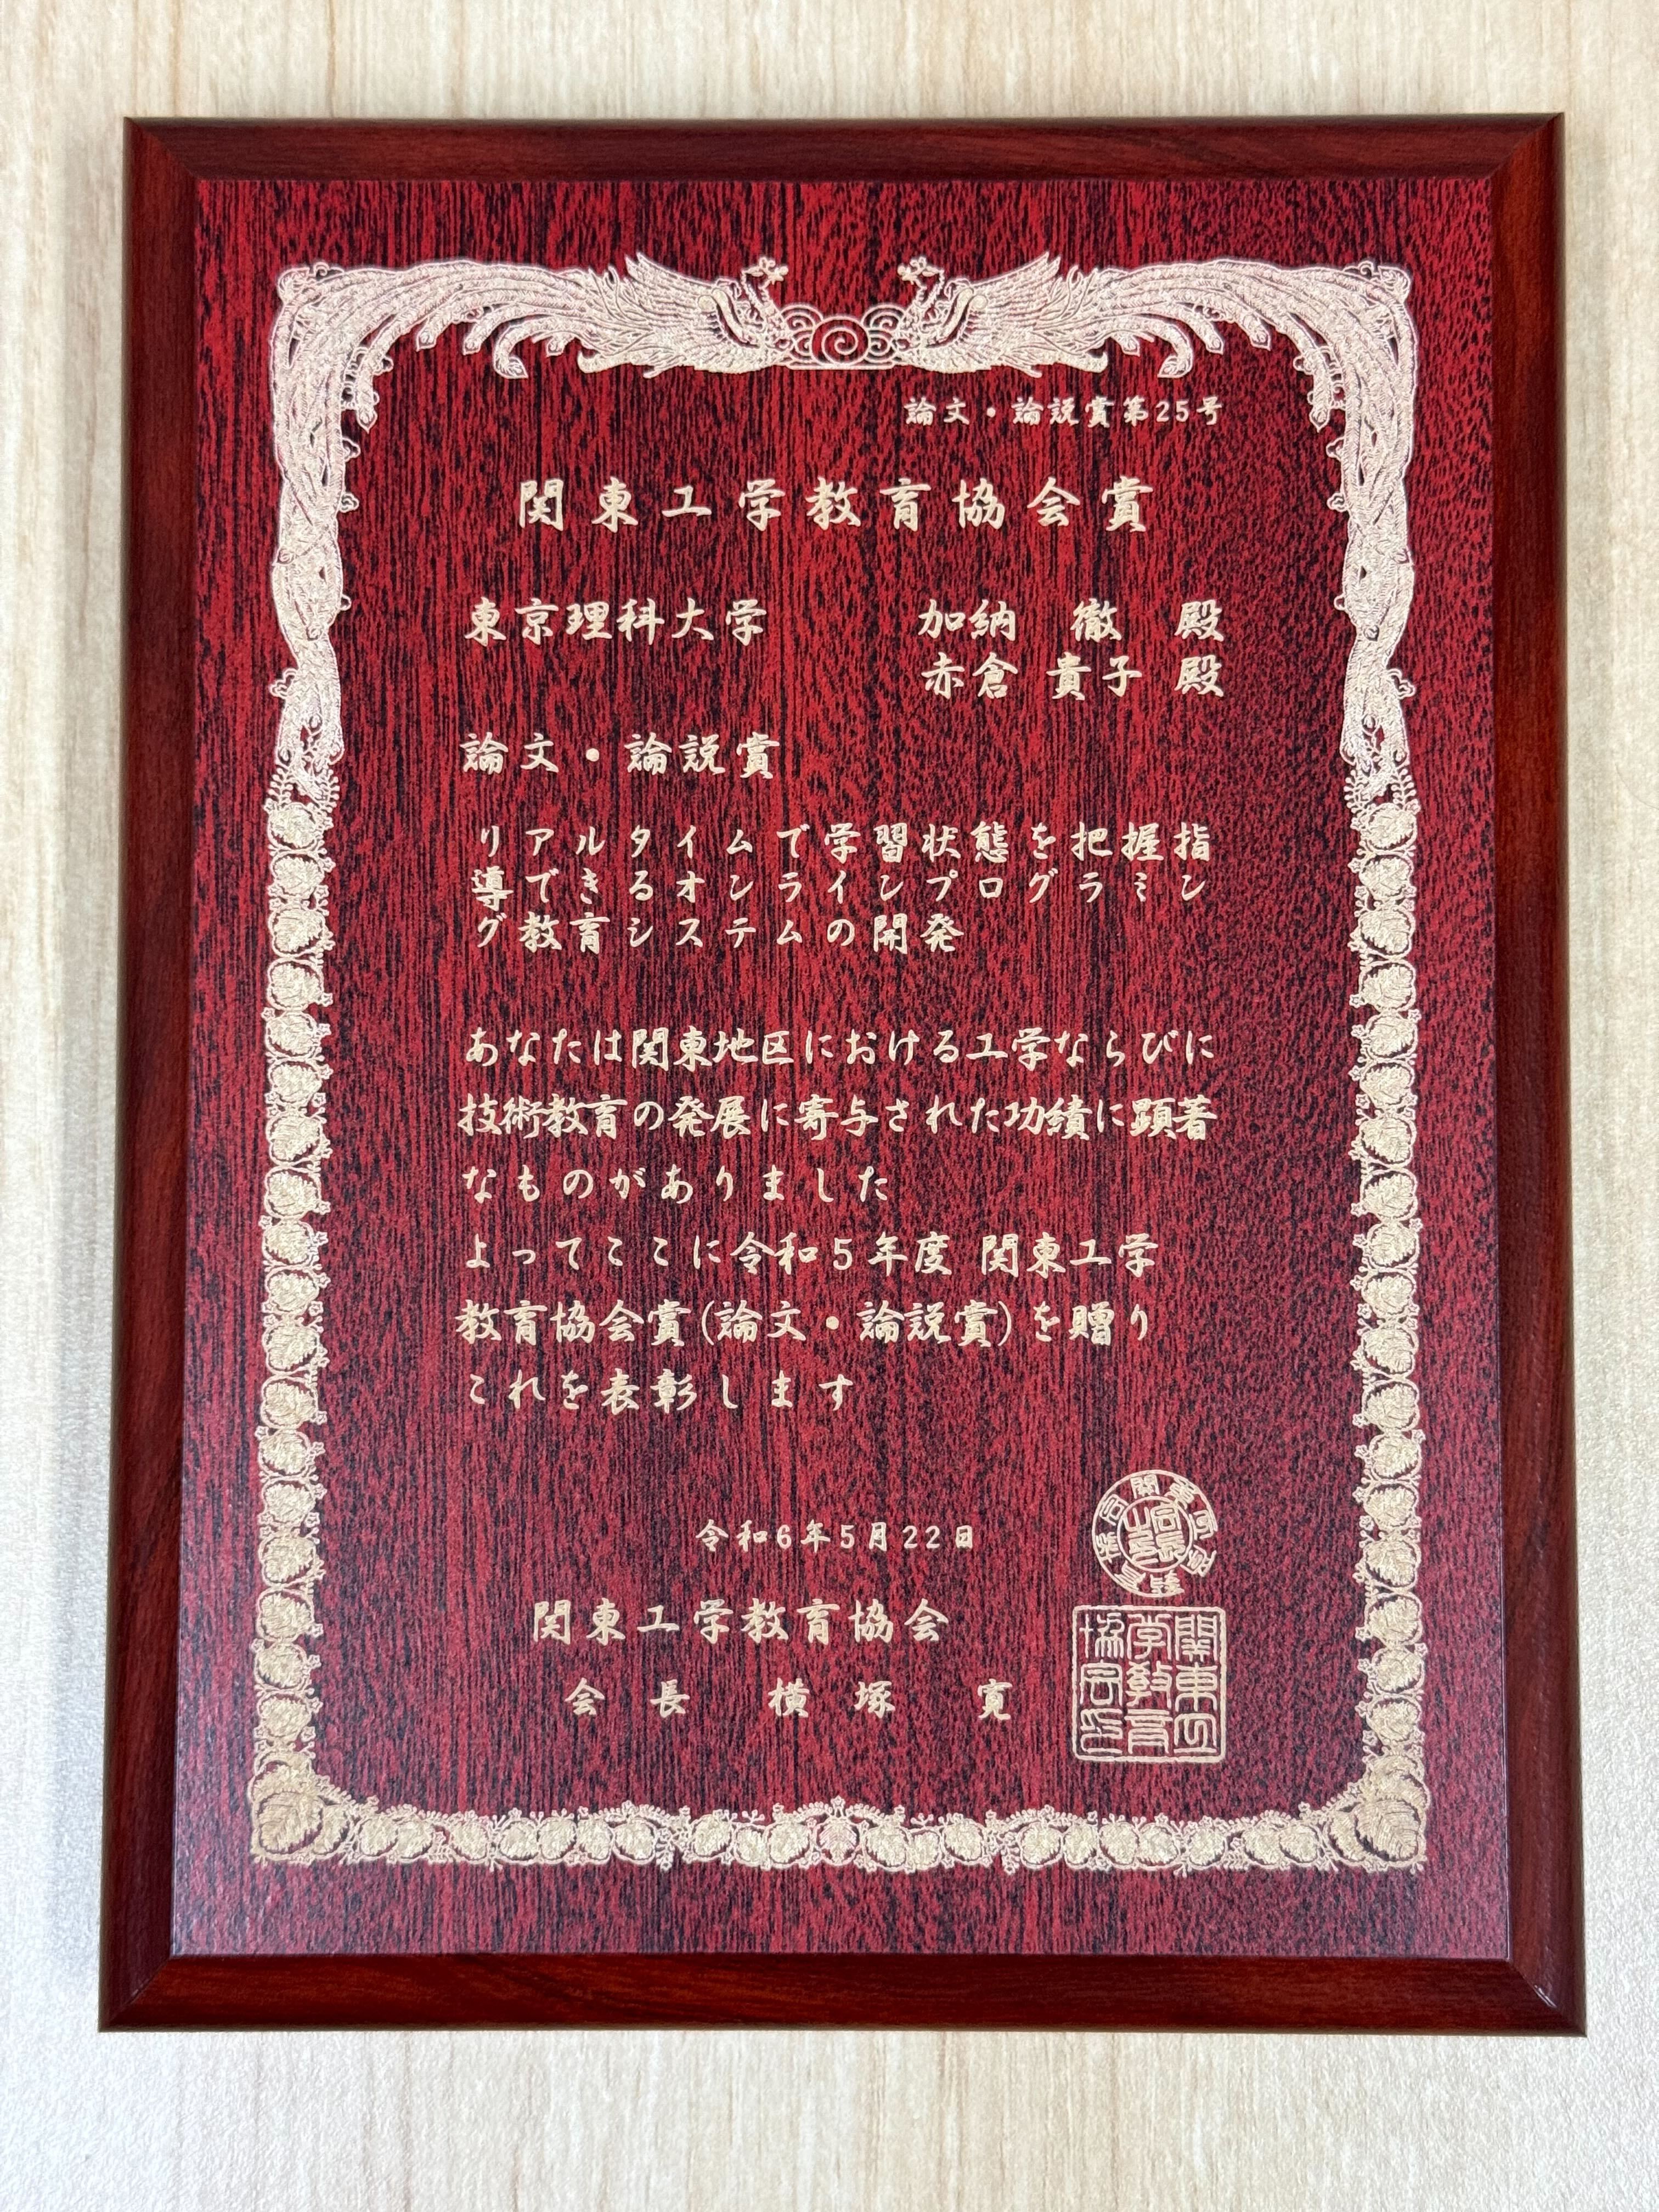 論文・論説賞第25号
関東工学教育協会賞
東京理科大学　加納　徹　殿
赤倉　貴子　殿
論文・論説賞
リアルタイムで学習状態を把握指
導できるオンラインプログラミン
グ教育システムの開発
あなたは関東地区における工学ならびに
技術教育の発展に寄与された功績に顕著
なものがありました
よってここに令和5年度 関東工学
教育協会賞(論文・論説賞)を贈り
これを表彰します
令和6年5月22日
関東工学教育協会
会長　横塚　寛